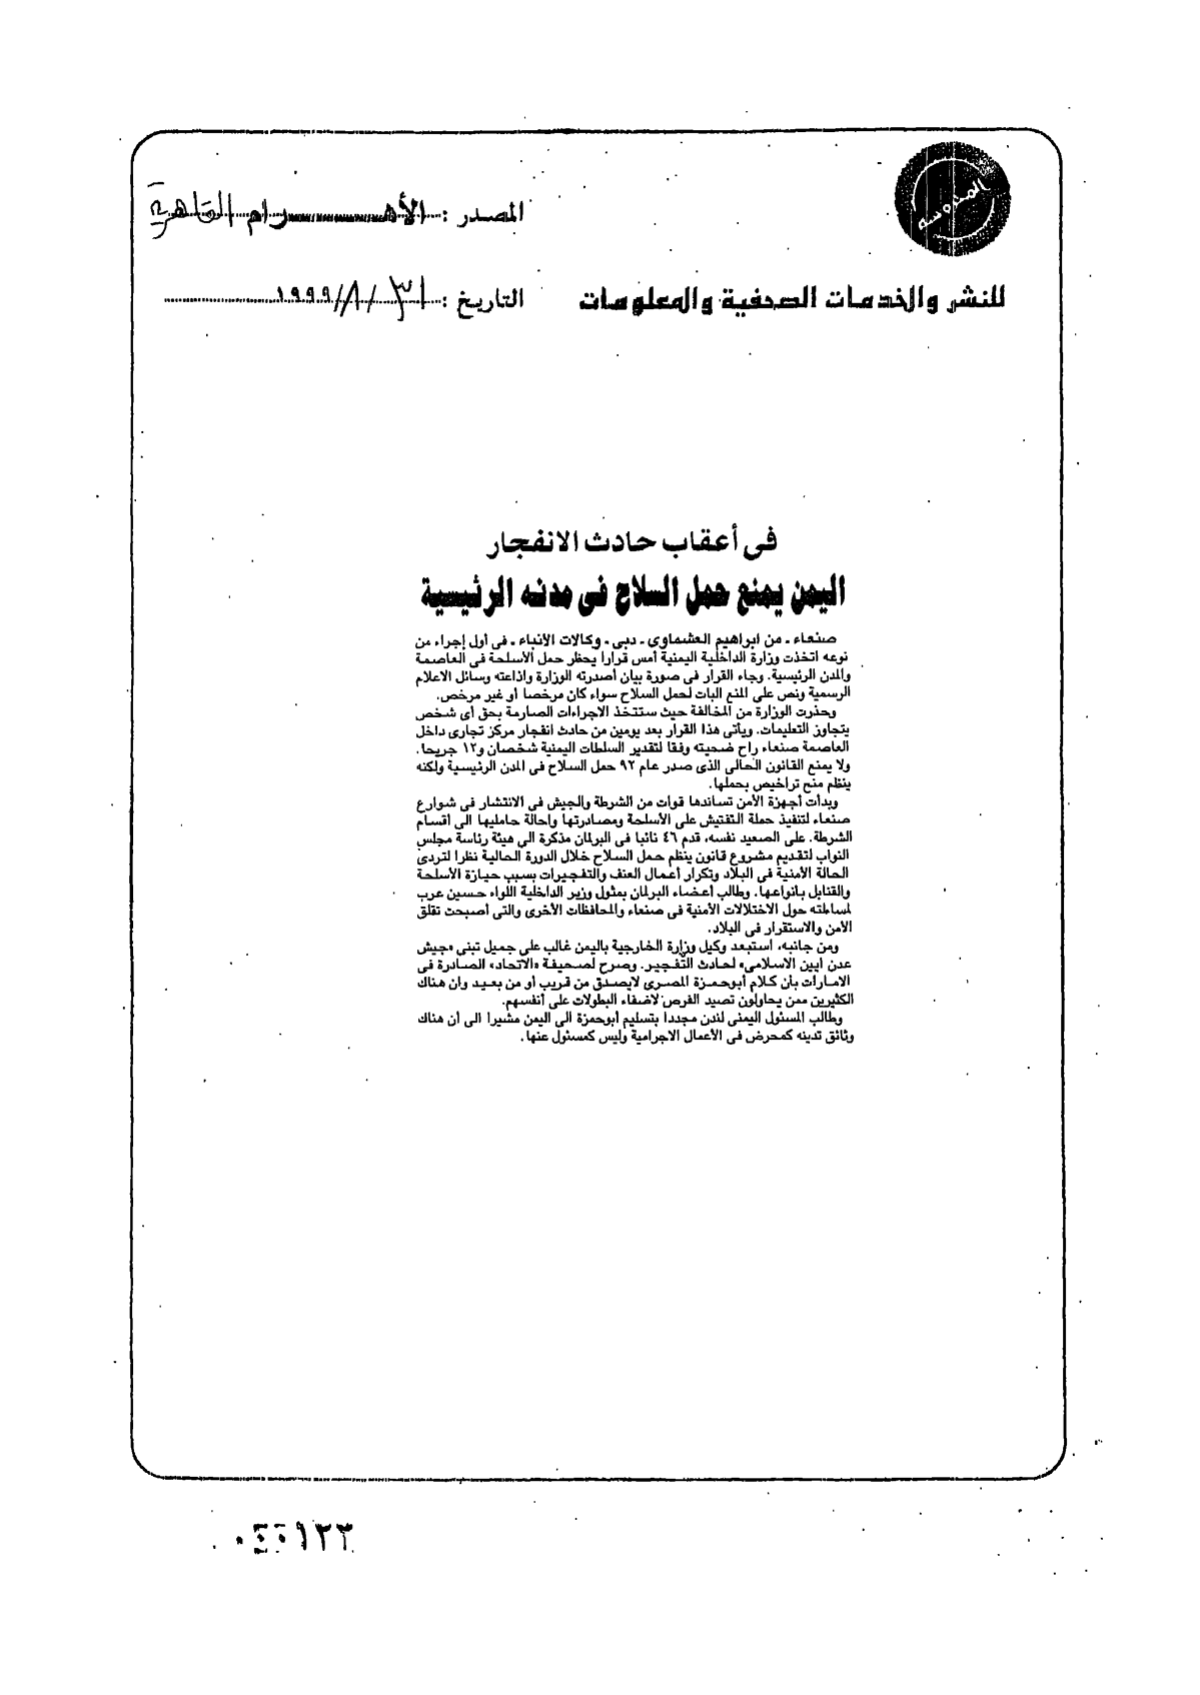 المحروسة
المصدر : الأهـــــرام القاهرية
للنشر والخدمات الصحفية والمعلومات
التاريخ : ٣١ / ٨ / ١٩٩٩
فى أعقاب حادث الانفجار
اليمن يمنع حمل السلاح فى مدنه الرئيسية
صنعاء ـ من ابراهيم العشماوى ـ دبى ـ وكالات الأنباء ـ فى أول إجراء من
نوعه اتخذت وزارة الداخلية اليمنية أمس قرارا يحظر حمل الأسلحة فى العاصمة
والمدن الرئيسية. وجاء القرار فى صورة بيان أصدرته الوزارة واذاعته وسائل الاعلام
الرسمية ونص على المنع البات لحمل السلاح سواء كان مرخصا أو غير مرخص.
وحذرت الوزارة من المخالفة حيث ستتخذ الاجراءات الصارمة بحق أى شخص
يتجاوز التعليمات. ويأتى هذا القرار بعد يومين من حادث انفجار مركز تجارى داخل
العاصمة صنعاء راح ضحيته وفقا لتقدير السلطات اليمنية شخصان و١٢ جريحا.
ولا يمنع القانون الحالى الذى صدر عام ٩٢ حمل السلاح فى المدن الرئيسية ولكنه
ينظم منح تراخيص بحملها.
وبدأت أجهزة الأمن تساندها قوات من الشرطة والجيش فى الانتشار فى شوارع
صنعاء لتنفيذ حملة التفتيش على الأسلحة ومصادرتها وإحالة حامليها الى أقسام
الشرطة. على الصعيد نفسه، قدم ٤٦ نائبا فى البرلمان مذكرة الى هيئة رئاسة مجلس
النواب لتقديم مشروع قانون ينظم حمل السلاح خلال الدورة الحالية نظرا لتردى
الحالة الأمنية فى البلاد وتكرار أعمال العنف والتفجيرات بسبب حيازة الأسلحة
والقنابل بانواعها. وطالب أعضاء البرلمان بمثول وزير الداخلية اللواء حسين عرب
لمساءلته حول الاختلالات الأمنية فى صنعاء والمحافظات الأخرى والتى أصبحت تقلق
الأمن والاستقرار فى البلاد.
ومن جانبه، استبعد وكيل وزارة الخارجية باليمن غالب على جميل تبنى «جيش
عدن ابين الاسلامى» لحادث التفجير. وصرح لصحيفة «الاتحاد» الصادرة فى
الامارات بأن كلام أبوحمزة المصرى لايصدق من قريب أو من بعيد وان هناك
الكثيرين ممن يحاولون تصيد الفرص لاضفاء البطولات على أنفسهم.
وطالب المسئول اليمنى لندن مجددا بتسليم أبوحمزة الى اليمن مشيرا الى أن هناك
وثائق تدينه كمحرض فى الأعمال الاجرامية وليس كمسئول عنها.